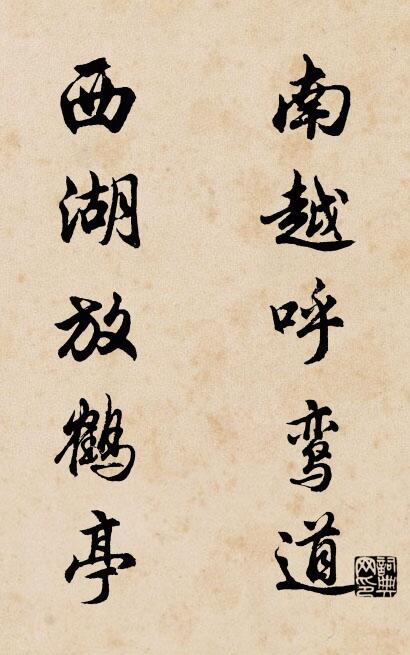 南越呼鸾道
西湖放鹤亭
詞典网印